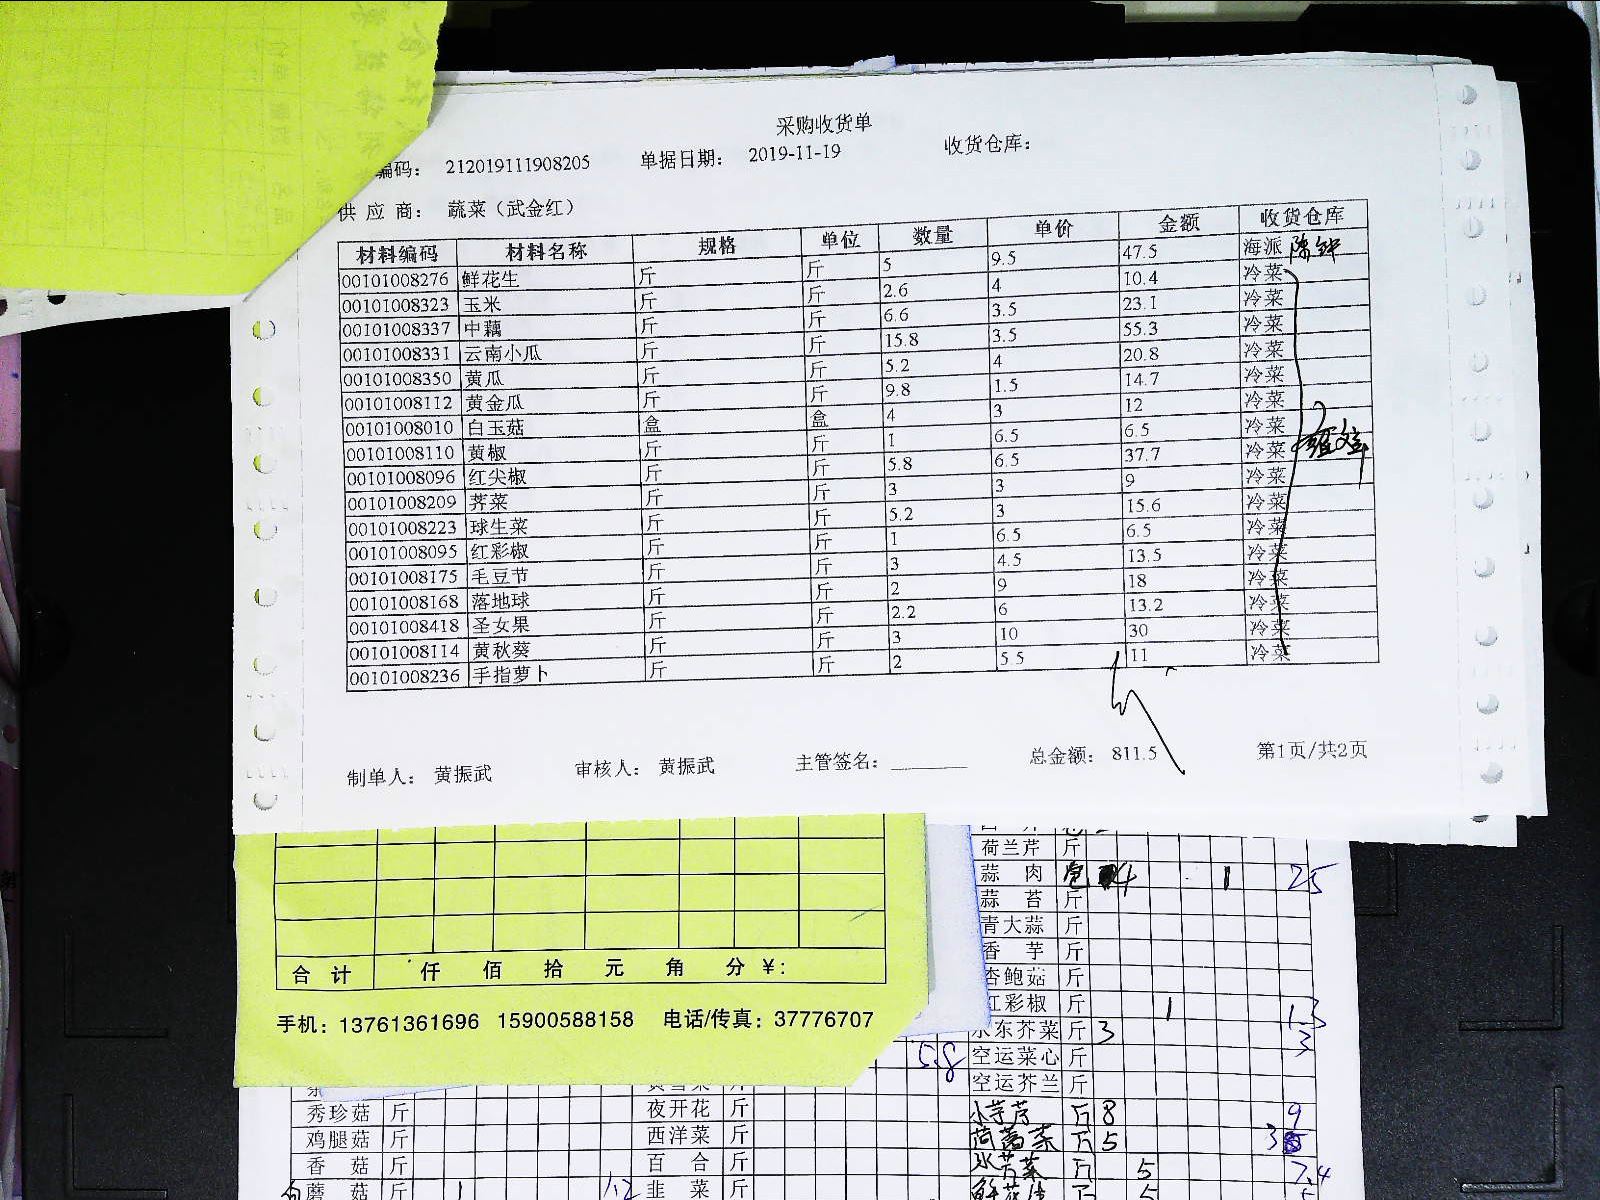 采购收货单
编码： 212019111908205 单据日期： 2019-11-19 收货仓库：
供 应 商： 蔬菜（武金红）
材料编码 材料名称 规格 单位 数量 单价 金额 收货仓库
00101008276 鲜花生 斤 斤 5 9.5 47.5 海派 陈钟
00101008323 玉米 斤 斤 2.6 4 10.4 冷菜
00101008337 中藕 斤 斤 6.6 3.5 23.1 冷菜
00101008331 云南小瓜 斤 斤 15.8 3.5 55.3 冷菜
00101008350 黄瓜 斤 斤 5.2 4 20.8 冷菜
00101008112 黄金瓜 斤 斤 9.8 1.5 14.7 冷菜
00101008010 白玉菇 盒 盒 4 3 12 冷菜
00101008110 黄椒 斤 斤 1 6.5 6.5 冷菜
00101008096 红尖椒 斤 斤 5.8 6.5 37.7 冷菜
00101008209 荠菜 斤 斤 3 3 9 冷菜
00101008223 球生菜 斤 斤 5.2 3 15.6 冷菜
00101008095 红彩椒 斤 斤 1 6.5 6.5 冷菜
00101008175 毛豆节 斤 斤 3 4.5 13.5 冷菜
00101008168 落地球 斤 斤 2 9 18 冷菜
00101008418 圣女果 斤 斤 2.2 6 13.2 冷菜
00101008114 黄秋葵 斤 斤 3 10 30 冷菜
00101008236 手指萝卜 斤 斤 2 5.5 11 冷菜
制单人： 黄振武 审核人： 黄振武 主管签名： 总金额： 811.5 第1页/共2页
荷兰芹 斤
蒜 肉 包 4 1 25
蒜 苔 斤
青大蒜 斤
香 芋 斤
杏鲍菇 斤
红彩椒 斤 1 1.3
水东芥菜 斤 3 3
空运菜心 斤
空运芥兰 斤
合 计 仟 佰 拾 元 角 分 ¥：
手机：13761361696 15900588158 电话/传真：37776707
5.8
秀珍菇 斤 夜开花 斤 小芋艿 斤 8 9
鸡腿菇 斤 西洋菜 斤 茼蒿菜 斤 5
香 菇 斤 百 合 斤 水芹菜 斤 5 7.4
蘑 菇 斤 1 韭 菜 斤 5